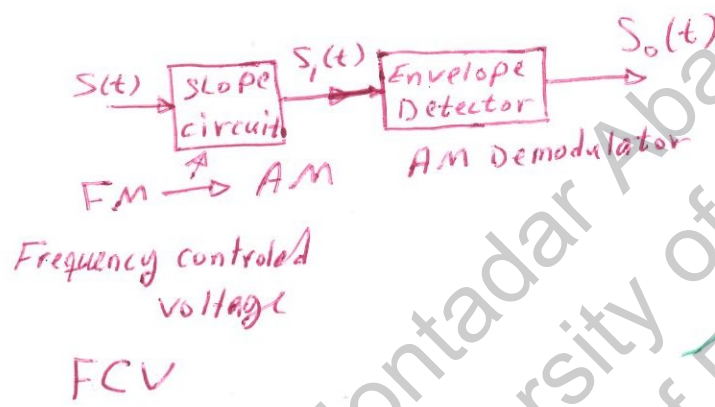 S(t)
SLope
circuit
S₁(t)
Envelope
Detector
S₀(t)
FM → AM
AM Demodulator
Frequency controled
voltage
FCV
ontadar Aba
ersity of
of